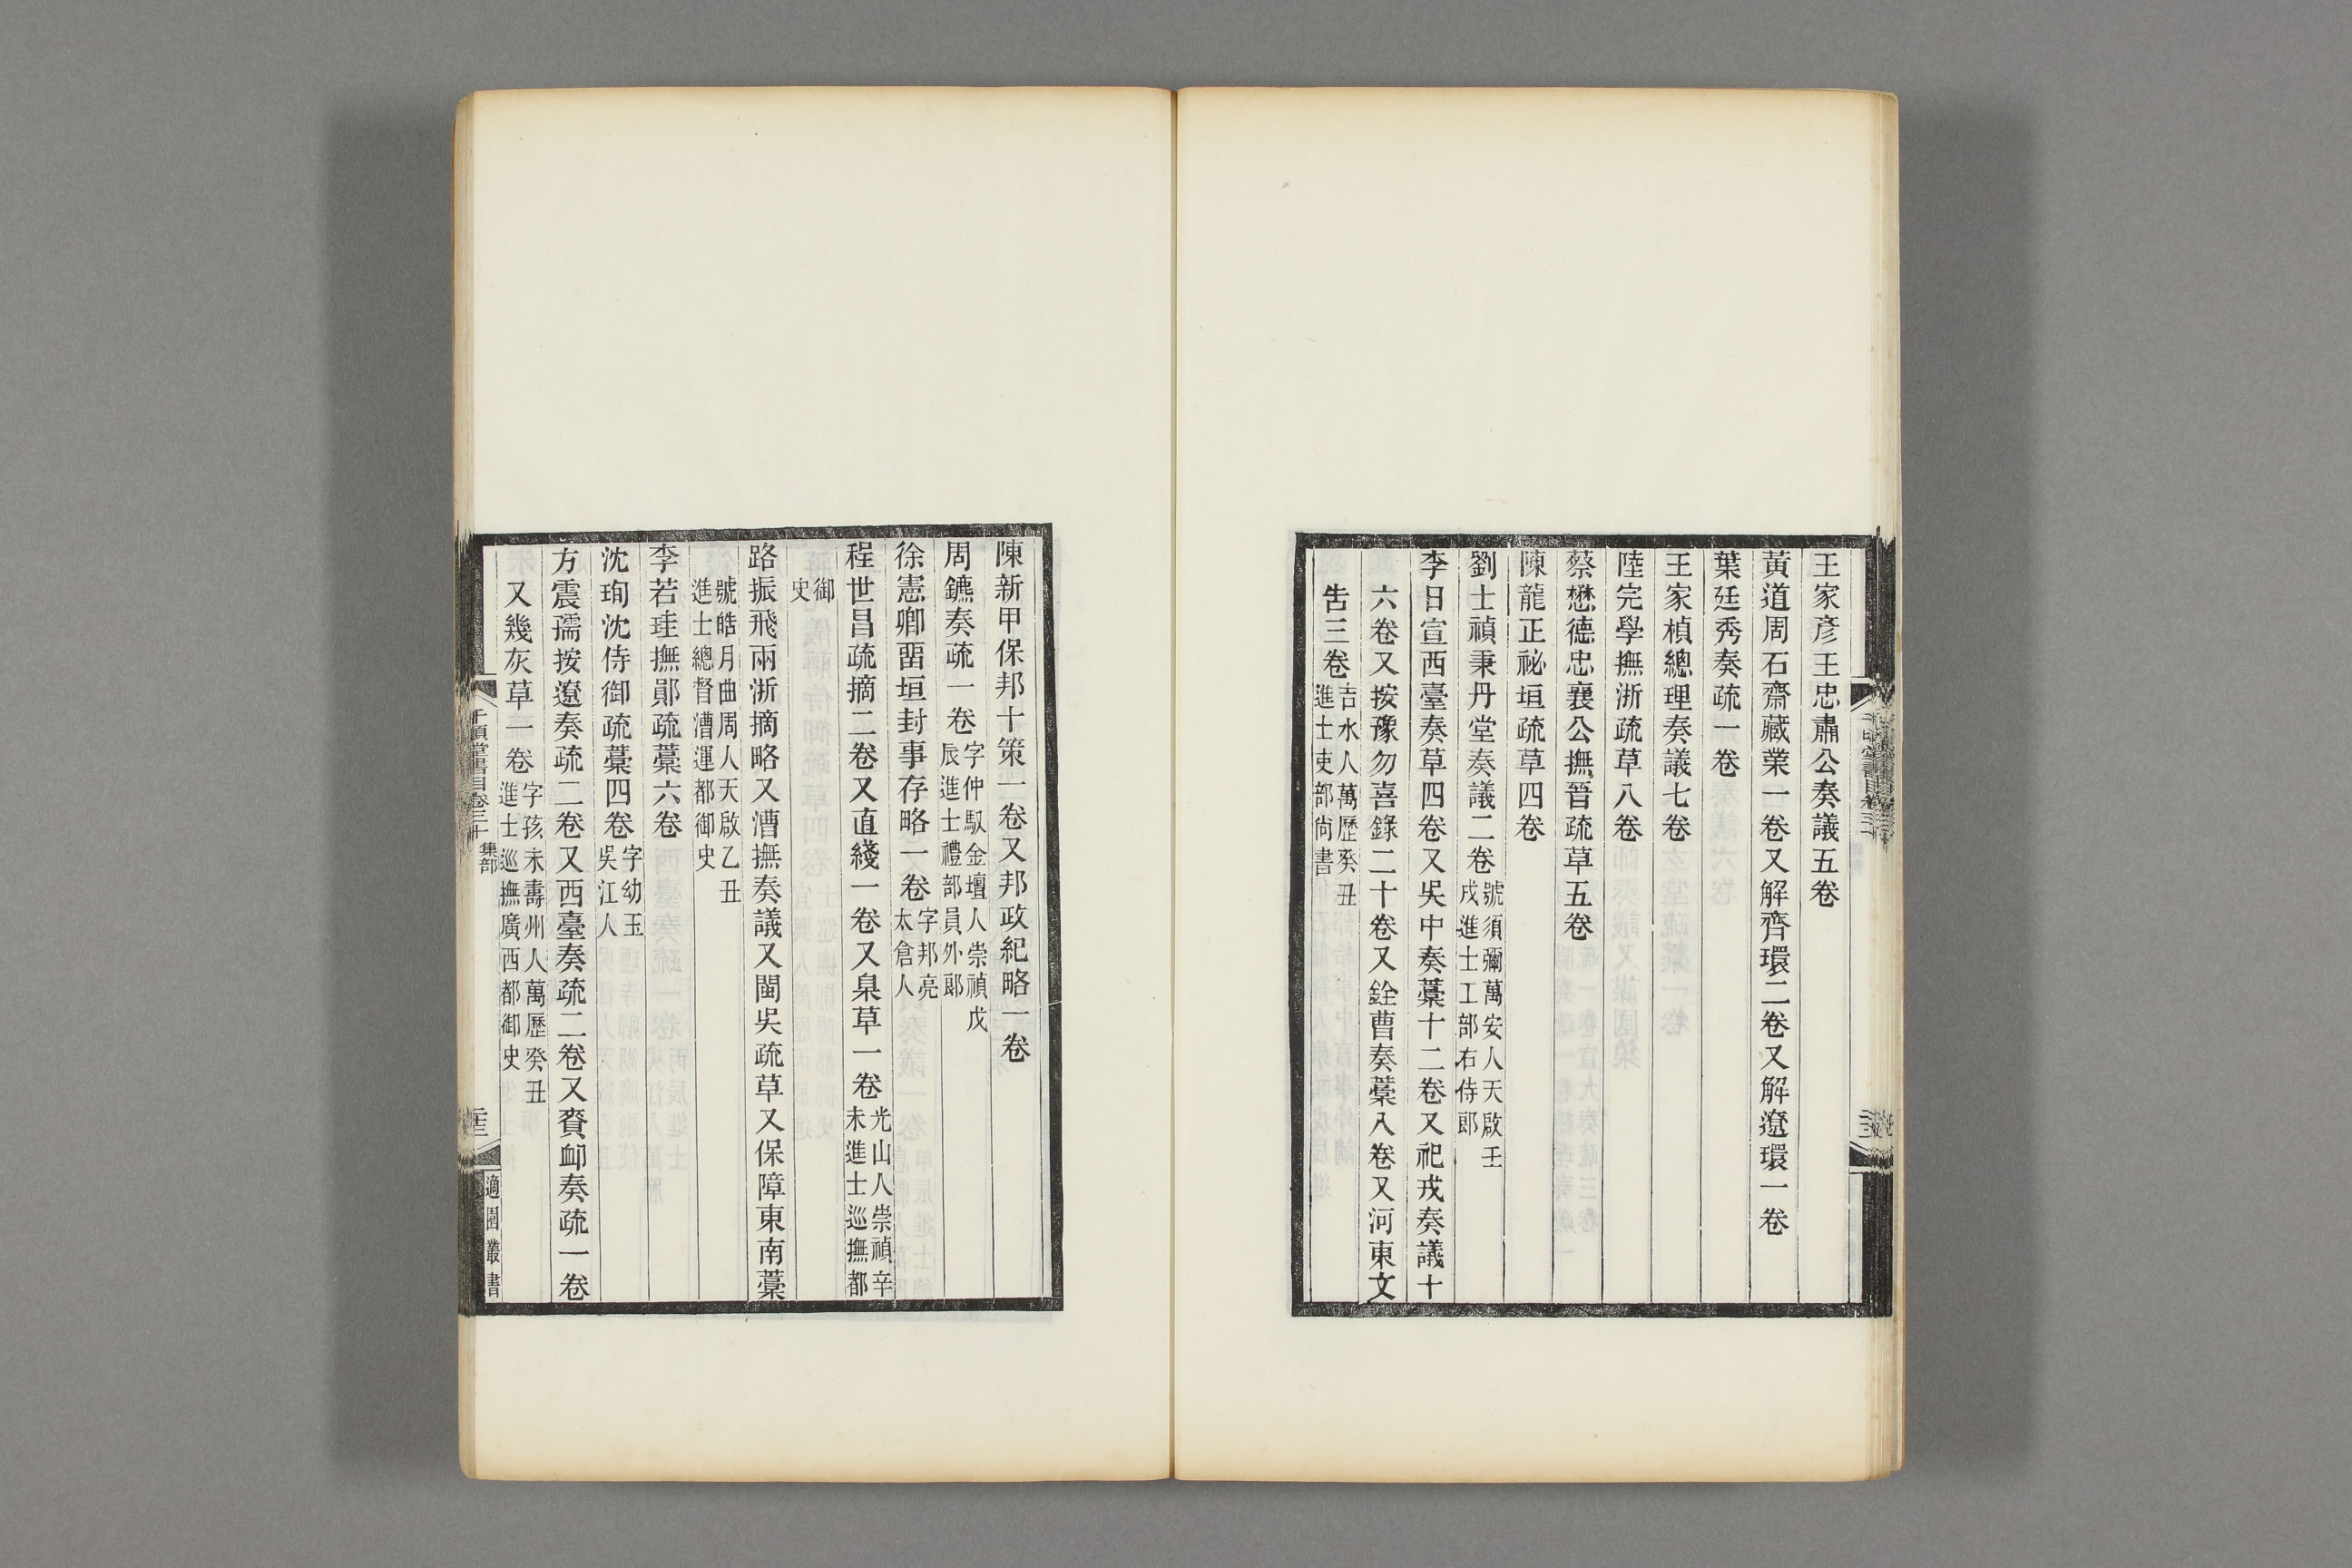 王家彥王忠肅公奏議五卷
黃道周石齋藏業一卷又解齊環二卷又解遼環一卷
葉廷秀奏疏一卷
王家楨總理奏議七卷
陸完學撫浙疏草八卷
蔡懋德忠襄公撫晉疏草五卷
陳龍正祕垣疏草四卷
劉士禎秉丹堂奏議二卷號須彌萬安人天啟壬
戌進士工部右侍郎
李日宣西臺奏草四卷又吳中奏藁十二卷又祀戎奏議十
六卷又按豫勿喜錄二十卷又銓曹奏藁八卷又河東文
告三卷吉水人萬歷癸丑
進士吏部尙書
陳新甲保邦十策一卷又邦政紀略一卷
周鑣奏疏一卷字仲馭金壇人崇禎戊
辰進士禮部員外郎
徐憲卿畱垣封事存略一卷字邦亮
太倉人
程世昌疏摘二卷又直綫一卷又臬草一卷光山人崇禎辛
未進士巡撫都
御
史
路振飛兩浙摘略又漕撫奏議又閩吳疏草又保障東南藁
號皓月曲周人天啟乙丑
進士總督漕運都御史
李若珪撫鄖疏藁六卷
沈珣沈侍御疏藁四卷字幼玉
吳江人
方震孺按遼奏疏二卷又西臺奏疏二卷又賚卹奏疏一卷
又幾灰草一卷字孩未壽州人萬歷癸丑
進士巡撫廣西都御史
千頃堂書目卷三十 集部
適園叢書